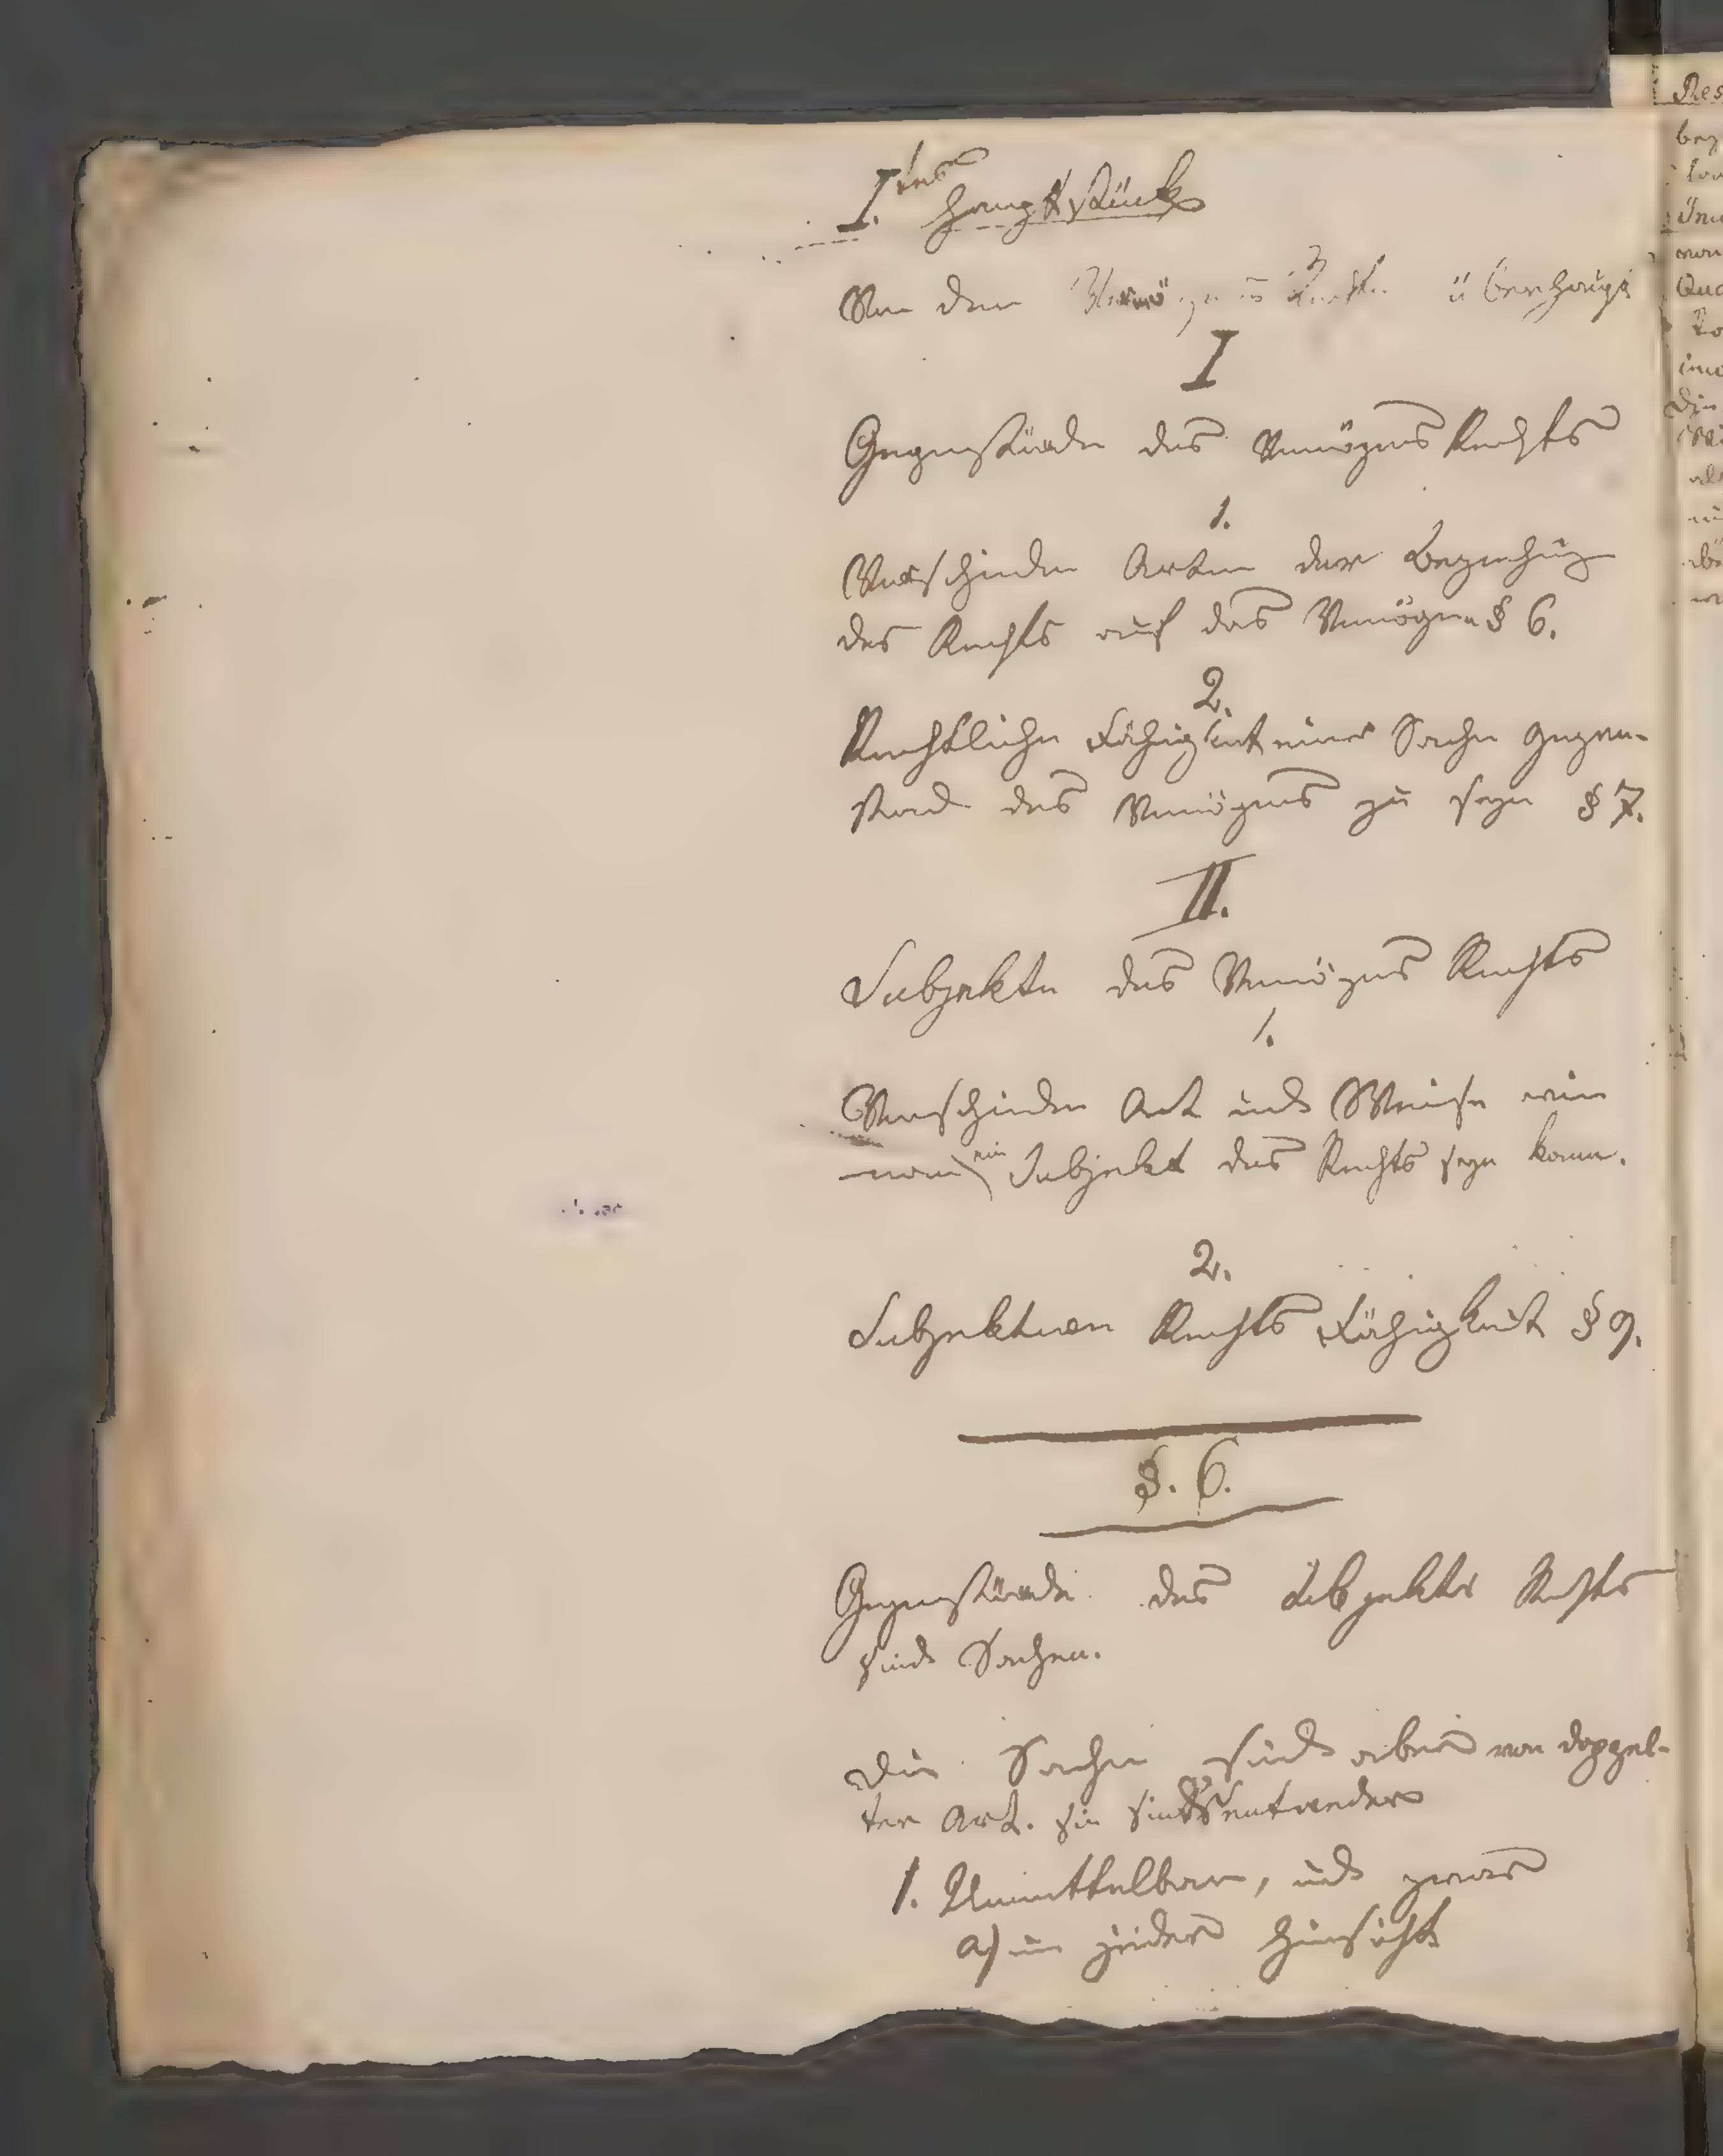 I.tes Hauptstück
Von dem Vermögens Rechte überhaupt
I
Gegenstände des Vermögens Rechts
1.
Verschiedene Arten der Beziehung
des Rechts auf das Vermögen § 6.
2.
Rechtliche Fähigkeit einer Sache Gegen-
stand des Vermögens zu seyn § 7.
II.
Subjekte des Vermögens Rechts
1.
Verschiedene Art und Weise wie
man ein Subjekt des Rechts seyn kann.
2.
Subjektiven Rechts Fähigkeit § 9.
§. 6.
Gegenstände des Rechts
sind Sachen.
Die Sachen sind aber von doppel-
ter Art. sie sind entweder
1. Unmittelbare, und zwar
a) in jeder Hinsicht